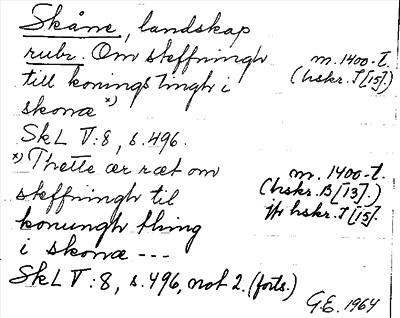 Skåne, landskap
rubr. Om steffningh m. 1400-t.
till konings tingh i (hskr. T [15].)
skonæ *)
SkL V:8, s. 496.
*) Thette ær ræt om m. 1400-t.
steffningh til (hskr. B [13].)
konungh thing jfr hskr. T [15].
i skonæ ---
SkL V:8, s. 496, not 2. (forts.)
G.E. 1964